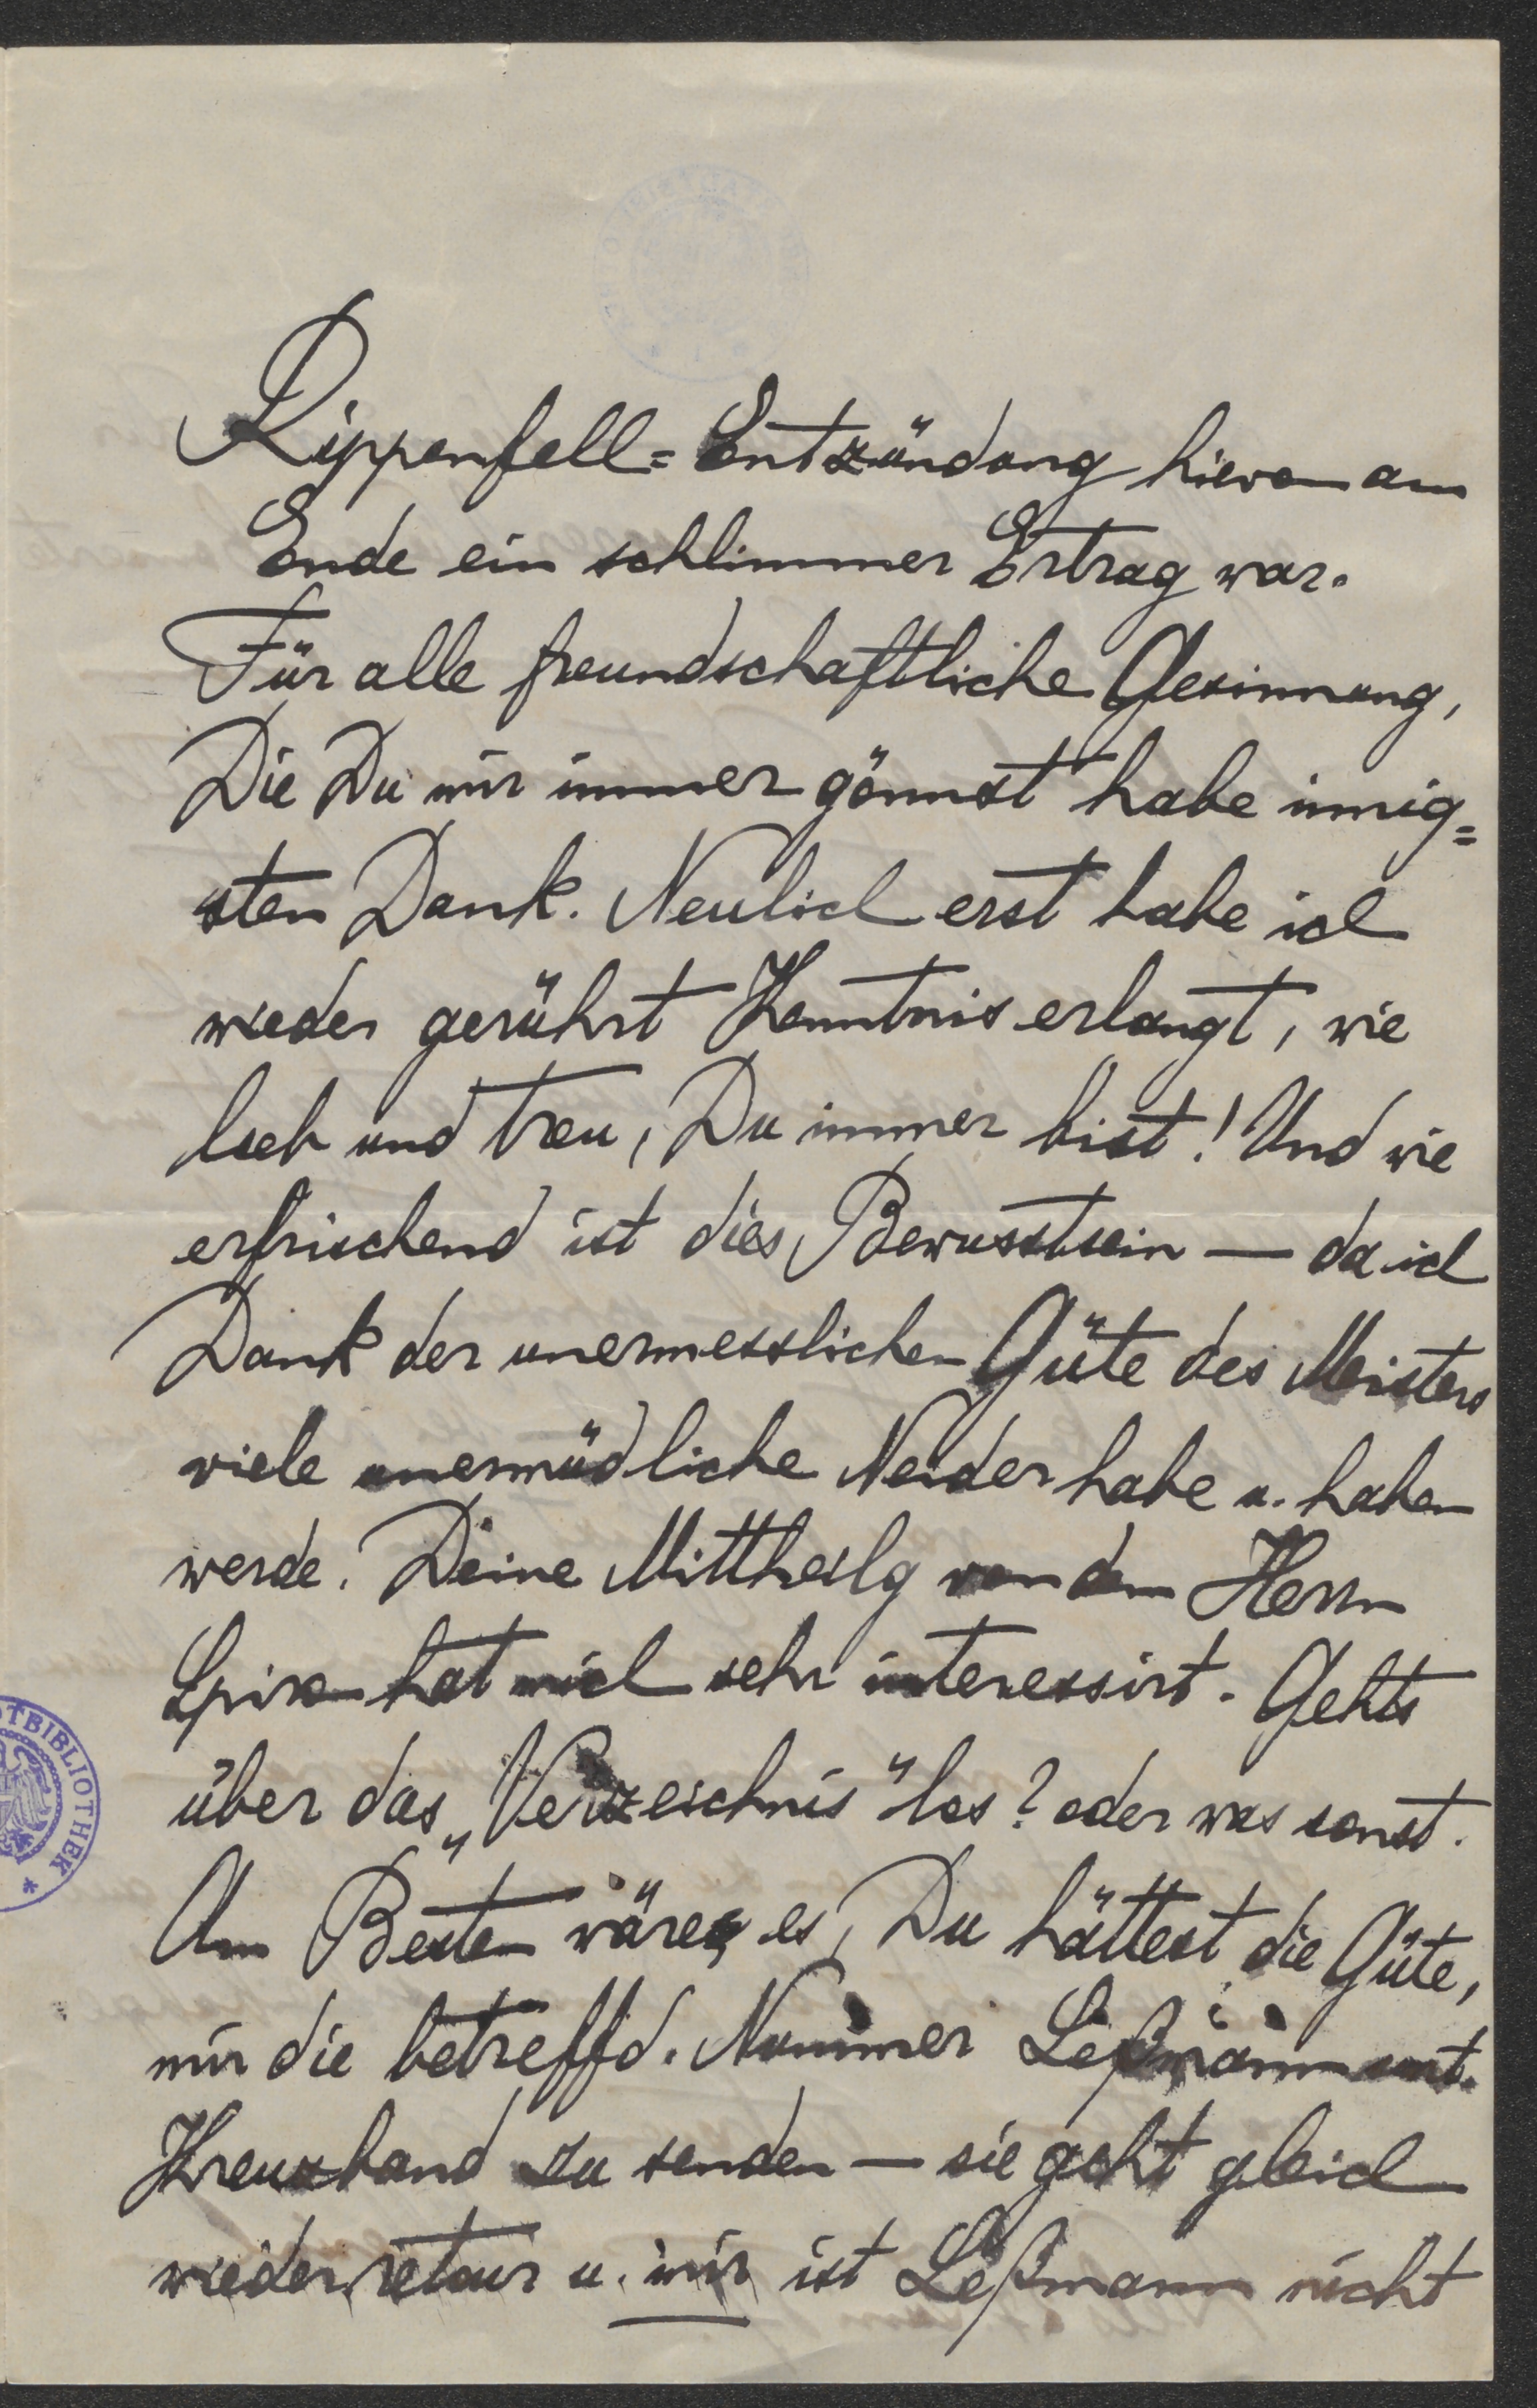 Rippenfell=Entzündung hievon am
Ende ein schlimmer Ertrag war.
Für alle freundschaftliche Gesinnung,
Die Du mir immer gönnst habe innig=
sten Dank. Neulich erst habe ich
wieder gerührt Kenntnis erlangt, wie
lieb und treu, Du immer bist! Und wie
erfrischend ist dies Bewusstsein — da ich
Dank der unermesslichen Güte des Meisters
viele unermüdliche Neider habe u. haben
werde. Deine Mittheilg von dem Herrn
Spiro hat mich sehr interessirt. Gehts
über das „Verzeichnis" los? oder was sonst.
Am Besten wäre es, Du hättest die Güte,
mir die betreffd. Nummer Leßmann unt.
Kreuzband zu senden — sie geht gleich
wieder retour u. mir ist Leßmann nicht
TBIBLIOTHEK *